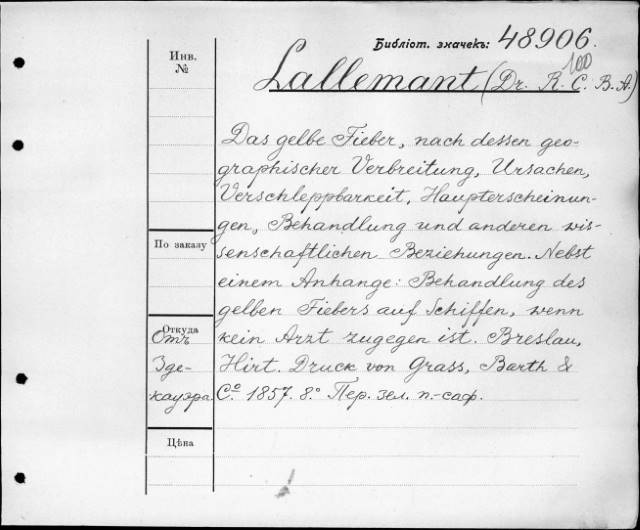 Библіот. значекъ: 48906.
100
Инв.
№
Lallemant (Dr. R. C. B. A.)
Das gelbe Fieber, nach dessen geo-
graphischer Verbreitung, Ursachen,
Verschleppbarkeit, Haupterscheinun-
gen, Behandlung und anderen wis-
По заказу
senschaftlichen Beziehungen. Nebst
einem Anhange: Behandlung des
gelben Fiebers auf Schiffen, wenn
Откуда
Отъ
kein Arzt zugegen ist. Breslau,
Зде-
Hirt. Druck von Grass, Barth &
кауэра.
Cº 1857. 8º Пер. зел. п.-саф.
Цѣна